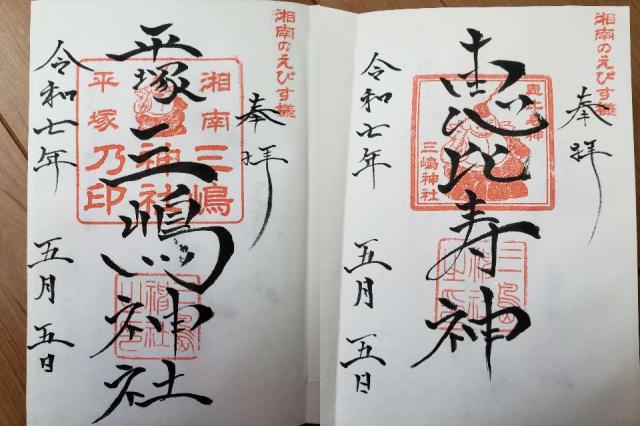 湘南のえびす様
奉拝
湘南三嶋
神社
平塚乃印
平塚三嶋神社
令和七年
五月五日
湘南のえびす様
奉拝
恵比寿神
三嶋神社
恵比寿神
令和七年
五月五日